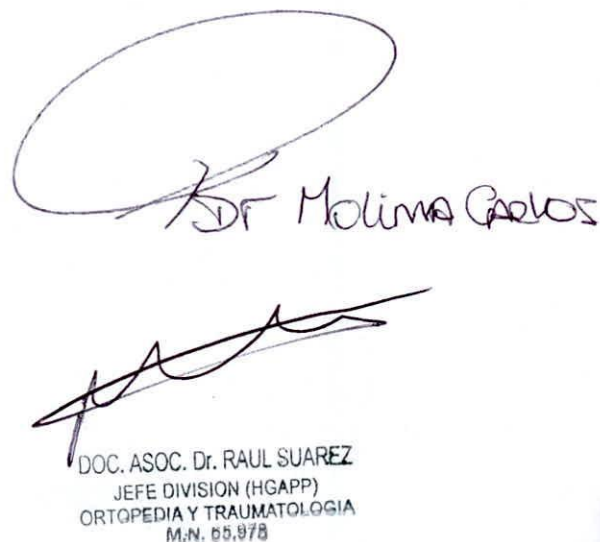 Dr Molina Carlos
DOC. ASOC. Dr. RAUL SUAREZ
JEFE DIVISION (HGAPP)
ORTOPEDIA Y TRAUMATOLOGIA
M.N. 55.978